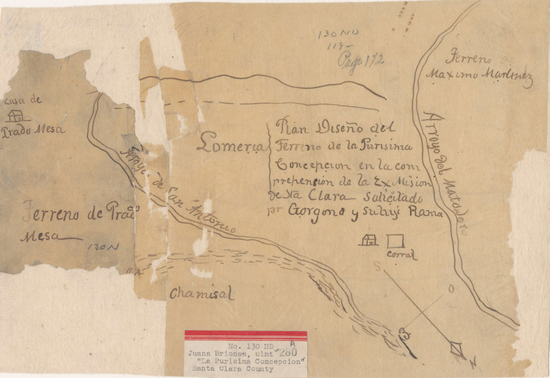 130 ND
119-
Page 172
Terreno
Maximo Martinez
Casa de
Prado Mesa
Arroyo del Matadero
Lomeria
Plan Diseño del
Terreno de la Purisima
Concepcion en la com
prehension de la Ex Mision
de Sta Clara Solicitado
por Gorgono y su hijo Ramo
Arroyo de San Antonio
Terreno de Prado
Mesa
130 N
corral
Chamisal
No. 130 ND
Juana Briones, clmt
"La Purisima Concepcion"
Santa Clara County